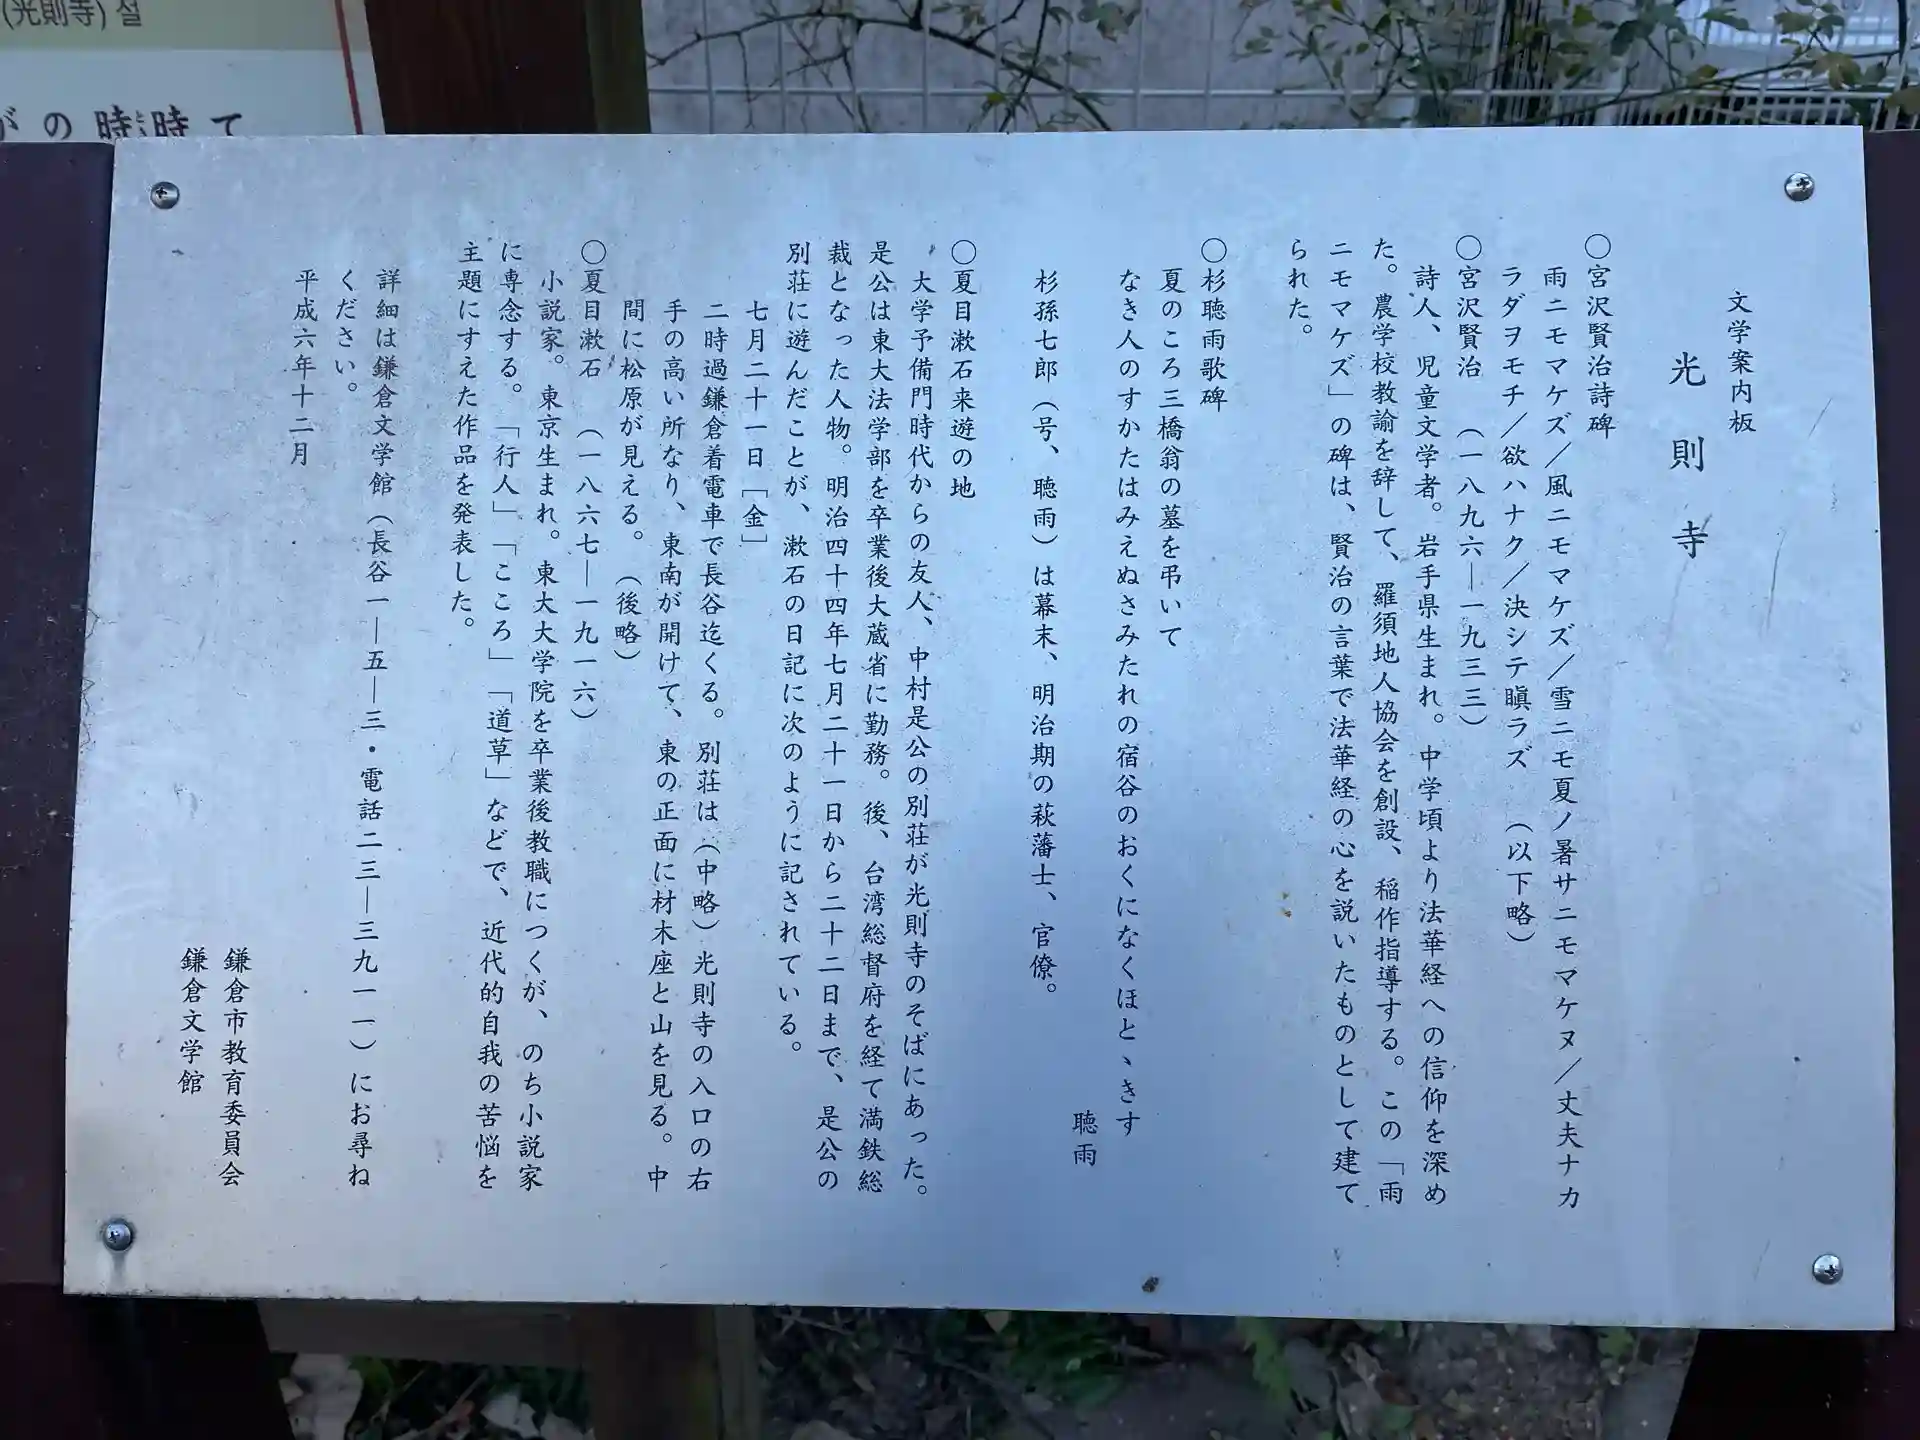 (光則寺) 설
がの時時て
文学案内板
光則寺
○宮沢賢治詩碑
雨ニモマケズ／風ニモマケズ／雪ニモ夏ノ暑サニモマケヌ／丈夫ナカ
ラダヲモチ／欲ハナク／決シテ瞋ラズ　（以下略）
○宮沢賢治　（一八九六―一九三三）
詩人、児童文学者。岩手県生まれ。中学頃より法華経への信仰を深め
た。農学校教諭を辞して、羅須地人協会を創設、稲作指導する。この「雨
ニモマケズ」の碑は、賢治の言葉で法華経の心を説いたものとして建て
られた。
○杉聴雨歌碑
夏のころ三橋翁の墓を弔いて
なき人のすかたはみえぬさみたれの宿谷のおくになくほとゝきす
聴雨
杉孫七郎（号、聴雨）は幕末、明治期の萩藩士、官僚。
○夏目漱石来遊の地
大学予備門時代からの友人、中村是公の別荘が光則寺のそばにあった。
是公は東大法学部を卒業後大蔵省に勤務。後、台湾総督府を経て満鉄総
裁となった人物。明治四十四年七月二十一日から二十二日まで、是公の
別荘に遊んだことが、漱石の日記に次のように記されている。
七月二十一日［金］
二時過鎌倉着電車で長谷迄くる。別荘は（中略）光則寺の入口の右
手の高い所なり、東南が開けて、東の正面に材木座と山を見る。中
間に松原が見える。（後略）
○夏目漱石　（一八六七―一九一六）
小説家。東京生まれ。東大大学院を卒業後教職につくが、のち小説家
に専念する。「行人」「こころ」「道草」などで、近代的自我の苦悩を
主題にすえた作品を発表した。
詳細は鎌倉文学館（長谷一―五―三・電話二三―三九一一）にお尋ね
ください。
平成六年十二月
鎌倉市教育委員会
鎌倉文学館